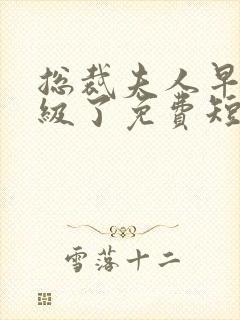 总裁夫人早
级了免费短
雪落十二